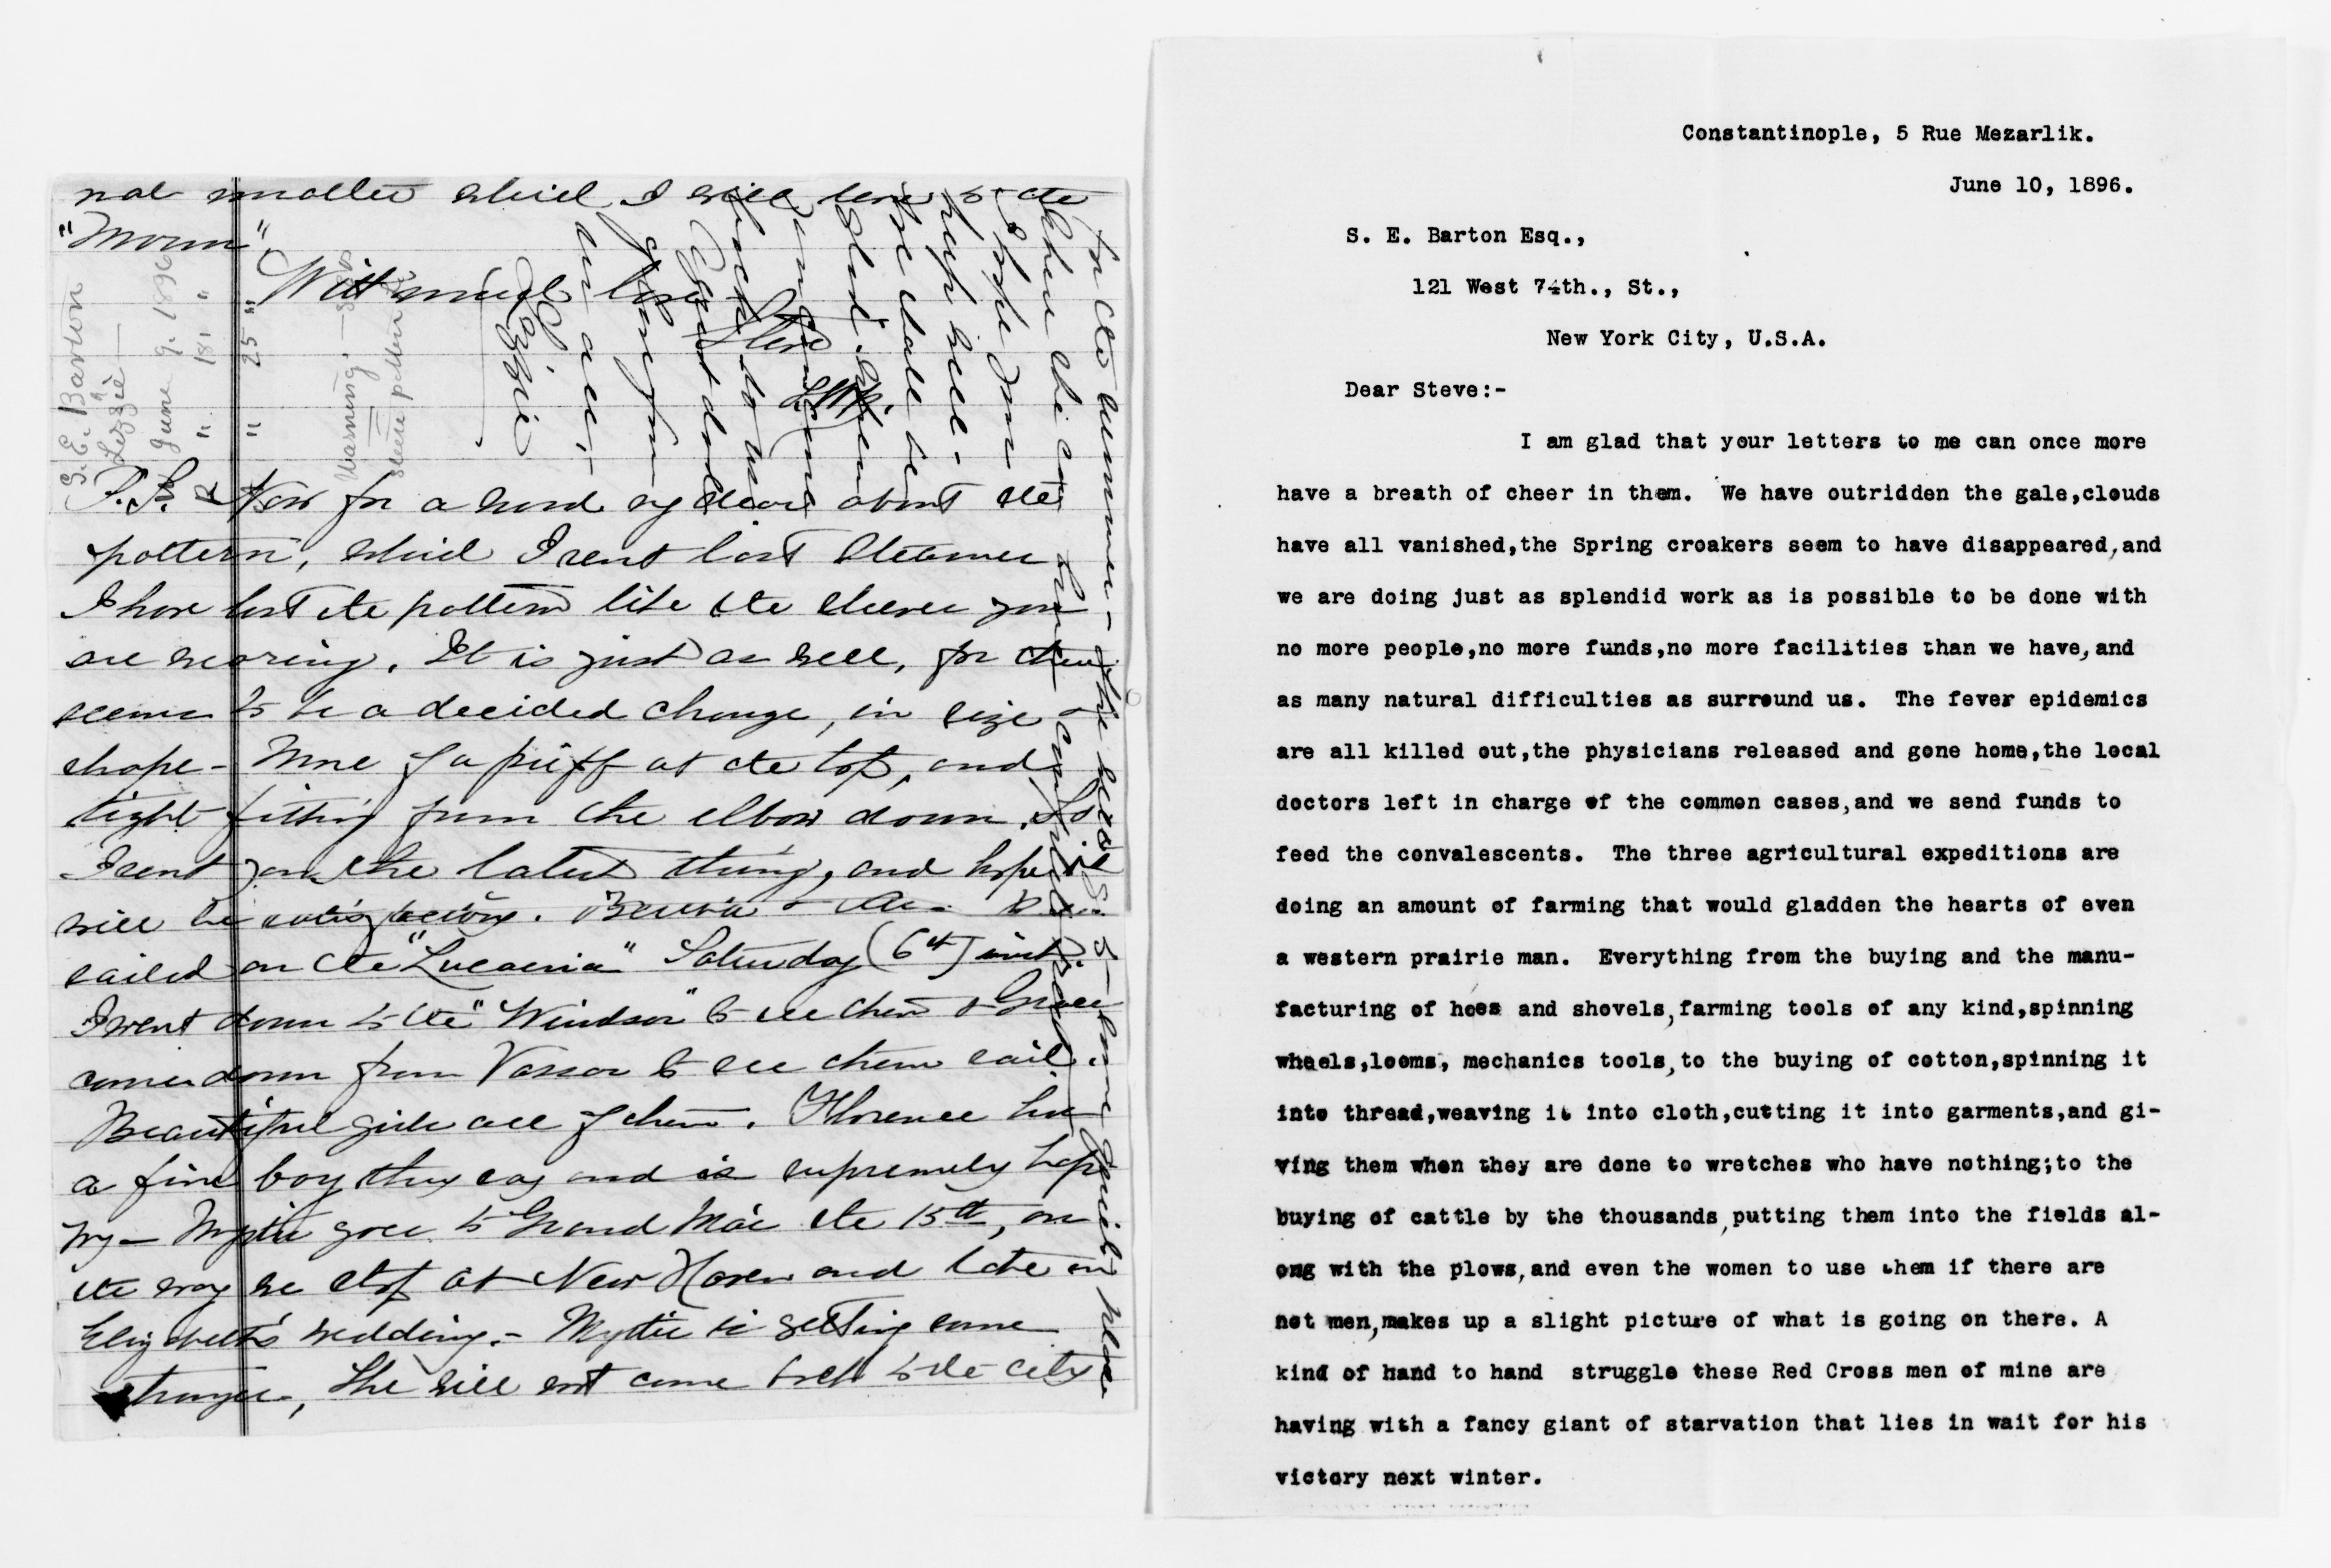 not matter which I will leave to the
"Mann"
With much love
Steve
S. E. Barton
Lizzie
June 9. 1896
" 181 "
" 25 "
Warning.
sleeve pattern
P.S. Now for a word my dear about the
pattern, which I sent last steamer
I have lost the pattern like the sleeves you
are wearing. It is just as well, for there
seems to be a decided change, in size &
shape - More of a puff at the top, and
tight fitting from the elbow down. So
I sent you the latest thing, and hope it
will be satisfactory.
sailed on the "Lucania" Saturday (6th) inst.
I went down to the "Windsor" to see them & Grace
came down from Vassar to see them sail.
Beautiful girls all of them. Florence has
a fine boy they say and is supremely hap-
py - Myrtie goes to Grand Ma's the 15th, on
the way we stop at New Haven and take in
Elizabeth's wedding. - Myrtie is getting some
stronger, She will not come back to the city
for the summer - 
Lizzie
Constantinople, 5 Rue Mezarlik.
June 10, 1896.
S. E. Barton Esq.,
121 West 74th., St.,
New York City, U.S.A.
Dear Steve:-
I am glad that your letters to me can once more
have a breath of cheer in them. We have outridden the gale,clouds
have all vanished,the Spring croakers seem to have disappeared,and
we are doing just as splendid work as is possible to be done with
no more people,no more funds,no more facilities than we have,and
as many natural difficulties as surround us. The fever epidemics
are all killed out,the physicians released and gone home,the local
doctors left in charge of the common cases,and we send funds to
feed the convalescents. The three agricultural expeditions are
doing an amount of farming that would gladden the hearts of even
a western prairie man. Everything from the buying and the manu-
facturing of hoes and shovels,farming tools of any kind,spinning
wheels,looms, mechanics tools,to the buying of cotton,spinning it
into thread,weaving it into cloth,cutting it into garments,and gi-
ving them when they are done to wretches who have nothing;to the
buying of cattle by the thousands,putting them into the fields al-
ong with the plows,and even the women to use them if there are
not men,makes up a slight picture of what is going on there. A
kind of hand to hand struggle these Red Cross men of mine are
having with a fancy giant of starvation that lies in wait for his
victory next winter.